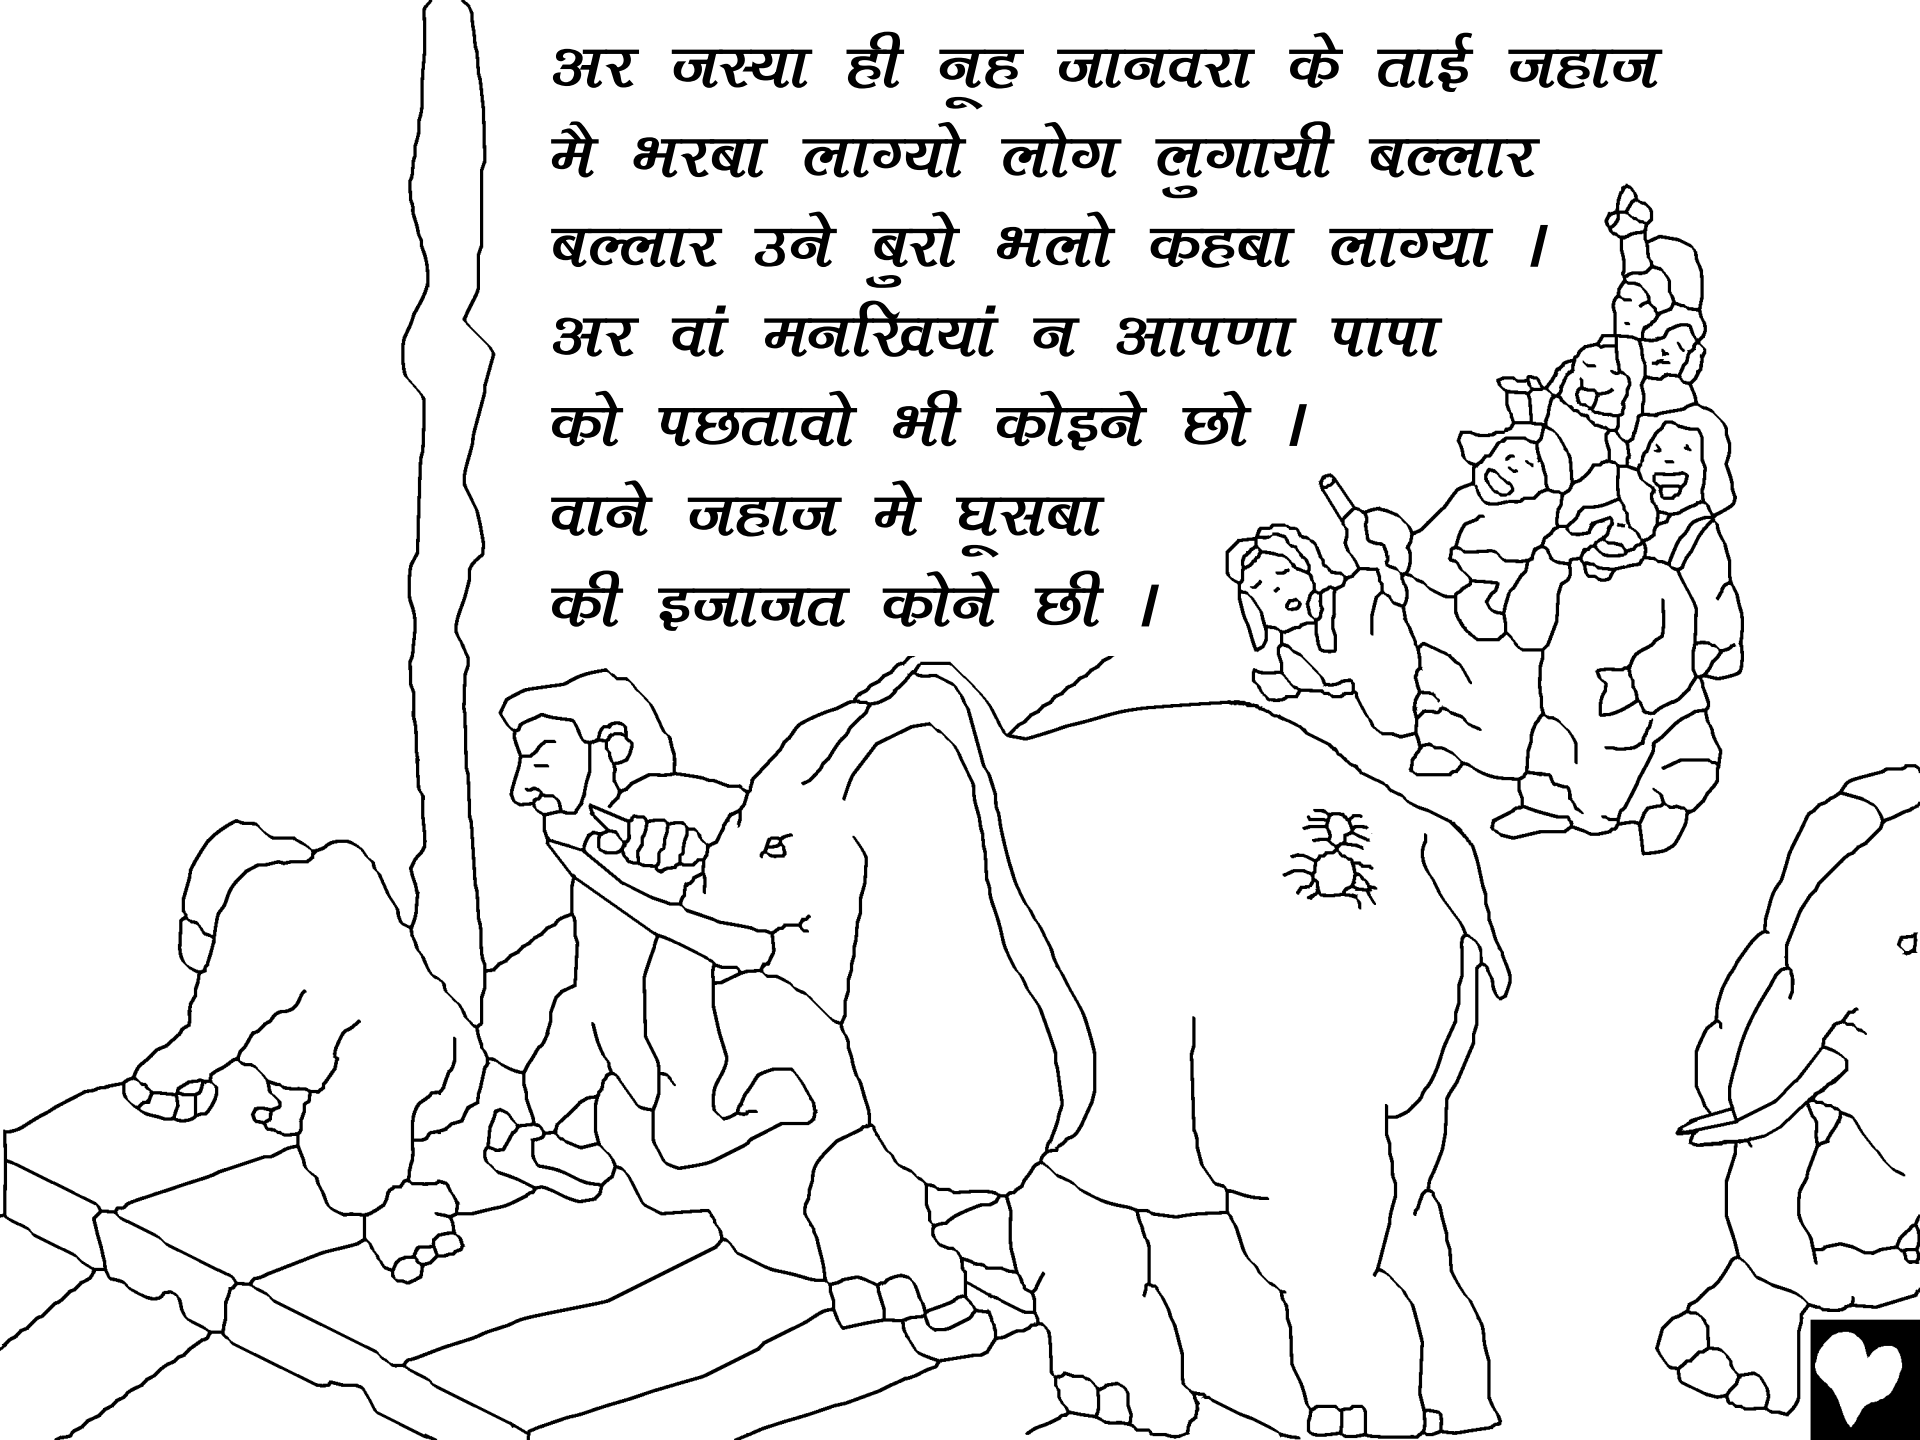 अर जस्या ही नूह जानवरा के ताई जहाज
मै भरबा लाग्यो लोग लुगायी बल्लार
बल्लार उने बुरो भलो कहबा लाग्या ।
अर वां मनखियां न आपणा पापा
को पछतावो भी कोइने छो ।
वाने जहाज मे घूसबा
की इजाजत कोने छी ।